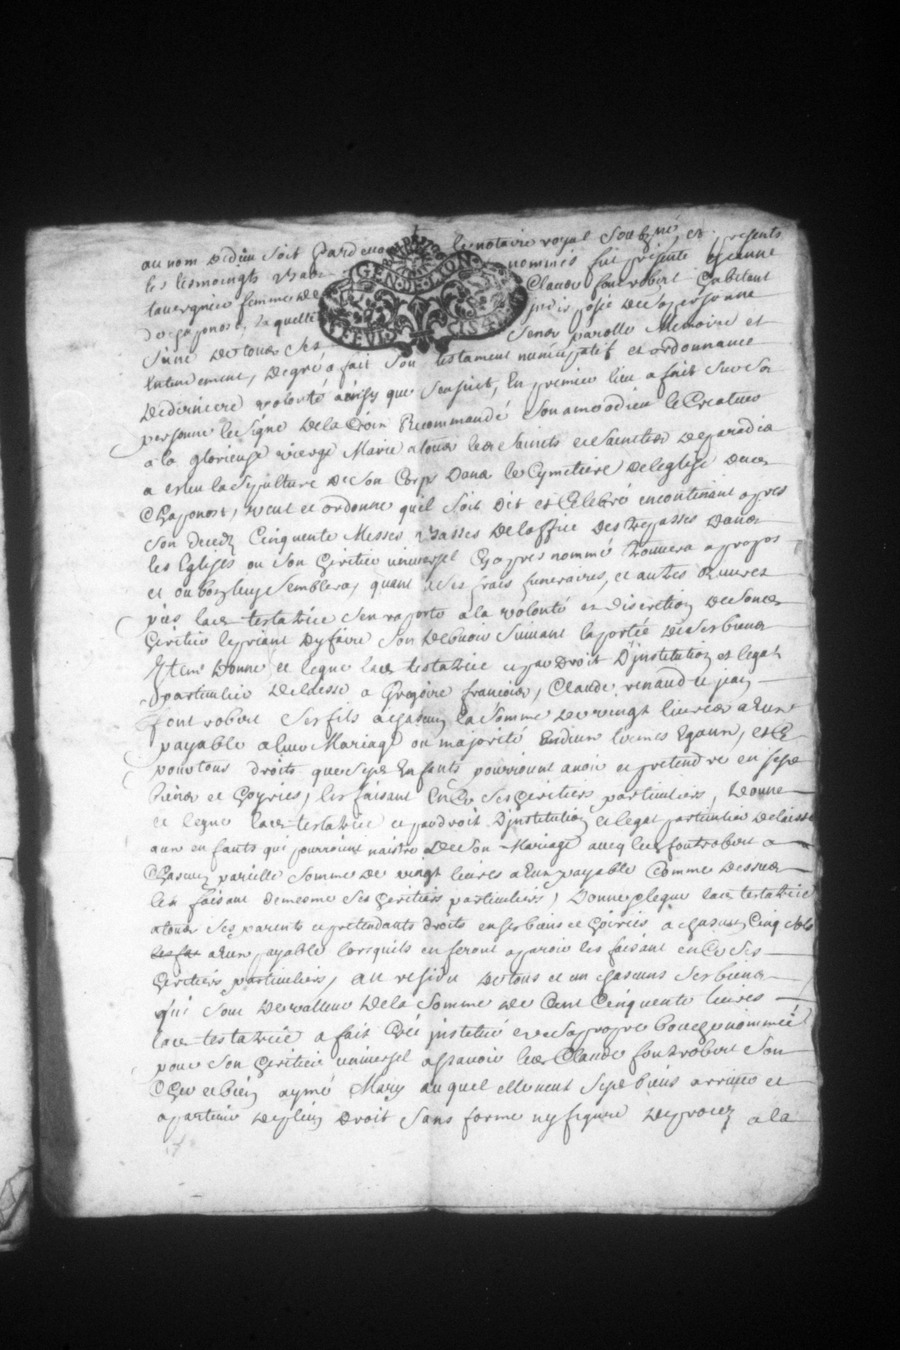 au nom de dieu soit Pardevant le notaire royal soubzné et presents
les tesmoingts nommés fut presente Jeanne
lavergniee femme de Claude fontrobert habitant
de chaponost, laquelle de sa personne
saine de tous ses sens parolle Memoire et
entendement, de gré a fait son testament nuncupatif et ordonnance
de derniere volonté ainsy que sensuit, En premier lieu a fait sur sa
personne le signe de la Croix Recommandé son ame a dieu le Createur
a la glorieuse vierge Marie a tous les saincts et sainctes de paradis
a esleu la sepulture de son Corps dans le Cymetiere de leglise dud
Chaponost, veut et ordonne quil soit dit et Celebré incontinant apres
son decedz Cinquente Messes basses de loffice des trepasses dans
les Eglises ou son heritier universel cy apres nommé trouvera a propos
et ou bon luy semblera, quant a ses frais funeraires, et autres œuvres
pies lad testatrice sen raporte a la volonté et discretion de sond
heritier le priant dy faire son debvoir suivant la portée de ses biens
Item donne et legue lad testatrice et par droit D'institution et legat
particulier delaisse a Gregoire francois, Claude, renaud et jean
fontrobert ses fils a chascun la somme de vingt livres a Eux
payable a leur Mariage ou majorité Endeux termes Egaux, et Ce
pour tous droits que sesd Enfants pourroient avoir et pretendre en sesd
biens et hoyries, les faisant En Ce ses heritiers particuliers, donne
et legue lad testatrice et par droit D'institution et legat particulier delaisse
aux enfants qui pourroient naistre de son Mariage avecq led fontrobert a
Chascun pareille somme de vingt livres a Eux payable Comme dessus
les faisant demeome ses heritiers particuliers, Donne et legue lad testatrice
a tous ses parents et pretendants droits en ses biens et hoiries a chascun Cinq sols
a Eux payable lorsquils en feront aparoir les faisant en Ce ses
heritiers particuliers, au residu de tous et un chascuns ses biens
qui sont de valleur de la somme de Cent Cinquente livres
lad testatrice a fait Créé institué et de sa propre bouche nommée
pour son heritier universel assavoir led Claude fontrobert son
Cher et bien aymé Mary auquel elle veut sesd biens arriver et
apartenir de plein droit sans forme ny figure de procez a la